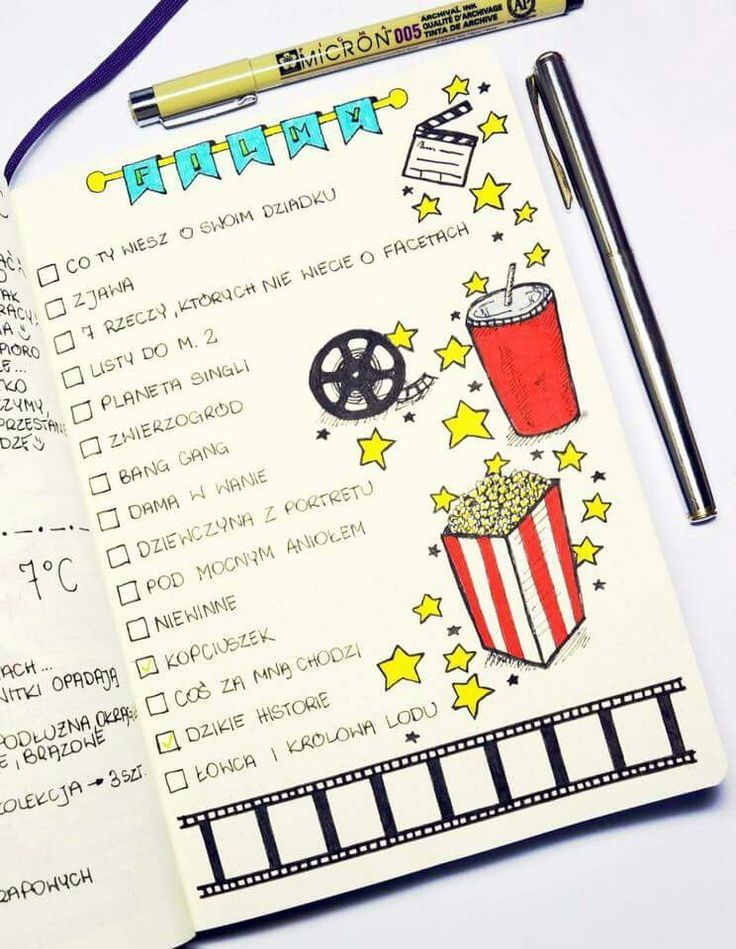 MICRON 005
ARCHIVAL INK
QUALITÉ D'ARCHIVAGE
TINTA DE ARCHIVE
AP
FILMY
CO TY WIESZ O SWOIM DZIADKU
ZJAWA
7 RZECZY, KTÓRYCH NIE WIECIE O FACETACH
LISTY DO M. 2
PLANETA SINGLI
ZWIERZOGRÓD
BANG GANG
DAMA W WANIE
DZIEWCZYNA Z PORTRETU
POD MOCNYM ANIOŁEM
NIEWINNE
KOPCIUSZEK
COŚ ZA MNĄ CHODZI
DZIKIE HISTORIE
ŁOWCA I KRÓLOWA LODU
7°C
NITKI OPADAJĄ
PODŁUŻNA, OKRĄ
E, BRĄZOWE
OLEKCJA → 3 SZT.
RAPOWYCH